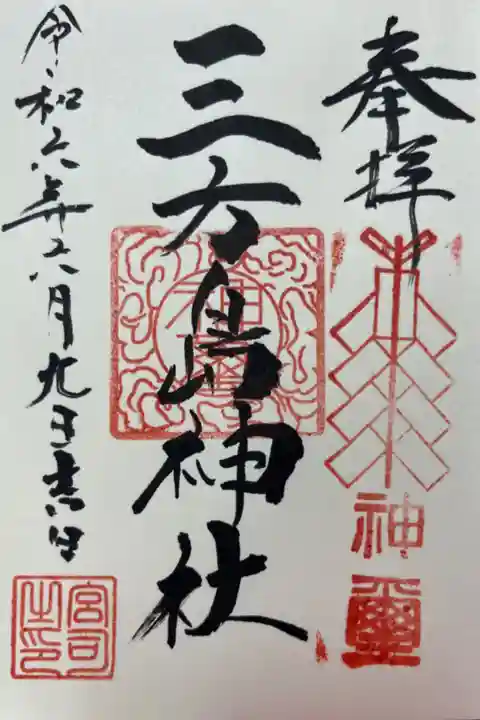 奉拝
神璽
三方島神社
神璽
令和六年六月九日吉日
宮司之印